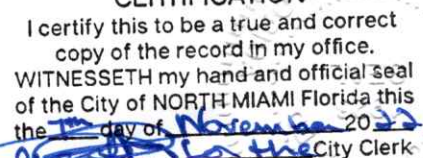 CERTIFICATION
I certify this to be a true and correct
copy of the record in my office.
WITNESSETH my hand and official seal
of the City of NORTH MIAMI Florida this
the 7th day of November 20 22
for the City Clerk